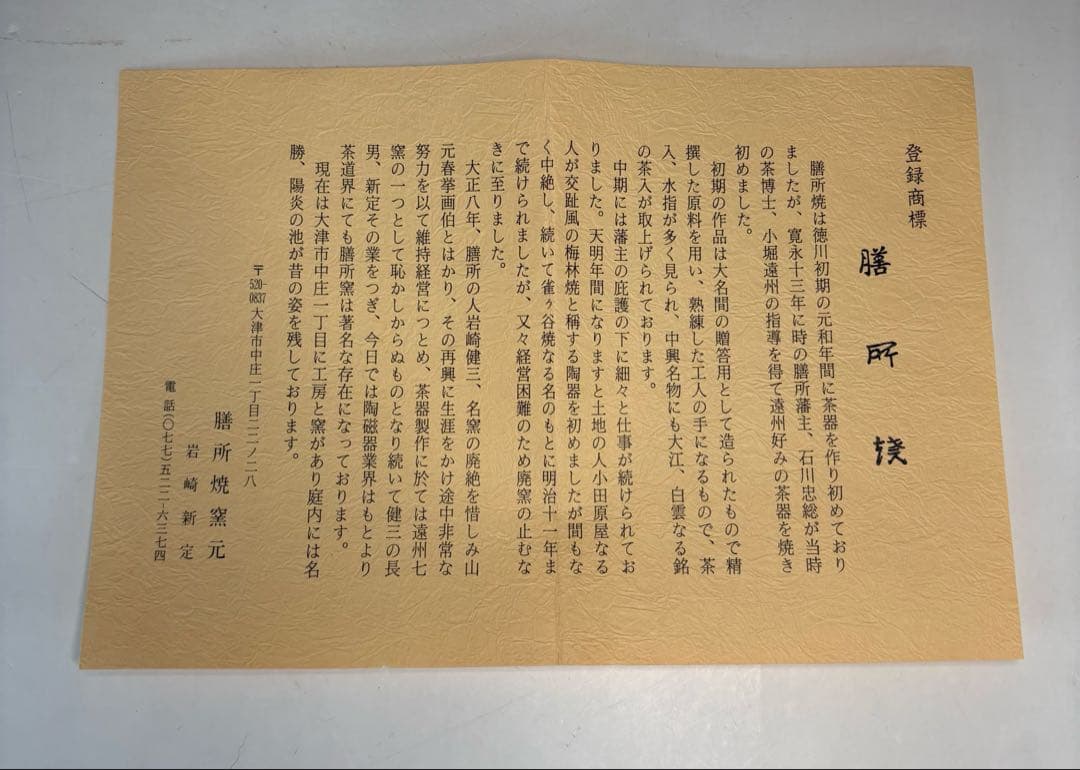 登録商標
膳所焼
膳所焼は徳川初期の元和年間に茶器を作り初めており
ましたが、寛永十三年に時の膳所藩主、石川忠総が当時
の茶博士、小堀遠州の指導を得て遠州好みの茶器を焼き
初めました。
初期の作品は大名間の贈答用として造られたもので精
撰した原料を用い、熟練した工人の手になるもので、茶
入、水指が多く見られ、中興名物にも大江、白雲なる銘
の茶入が取上げられております。
中期には藩主の庇護の下に細々と仕事が続けられてお
りました。天明年間になりますと土地の人小田原屋なる
人が交趾風の梅林焼と称する陶器を初めましたが間もな
く中絶し、続いて雀ヶ谷焼なる名のもとに明治十一年ま
で続けられましたが、又々経営困難のため廃窯の止むな
きに至りました。
大正八年、膳所の人岩崎健三、名窯の廃絶を惜しみ山
元春挙画伯とはかり、その再興に生涯をかけ途中非常な
努力を以て維持経営につとめ、茶器製作に於ては遠州七
窯の一つとして恥かしからぬものとなり続いて健三の長
男、新定その業をつぎ、今日では陶磁器業界はもとより
茶道界にても膳所窯は著名な存在になっております。
現在は大津市中庄一丁目に工房と窯があり庭内には名
勝、陽炎の池が昔の姿を残しております。
〒520-0837 大津市中庄一丁目二二ノ二八
膳所焼窯元
岩崎新定
電話(〇七七)五二二-六三七四